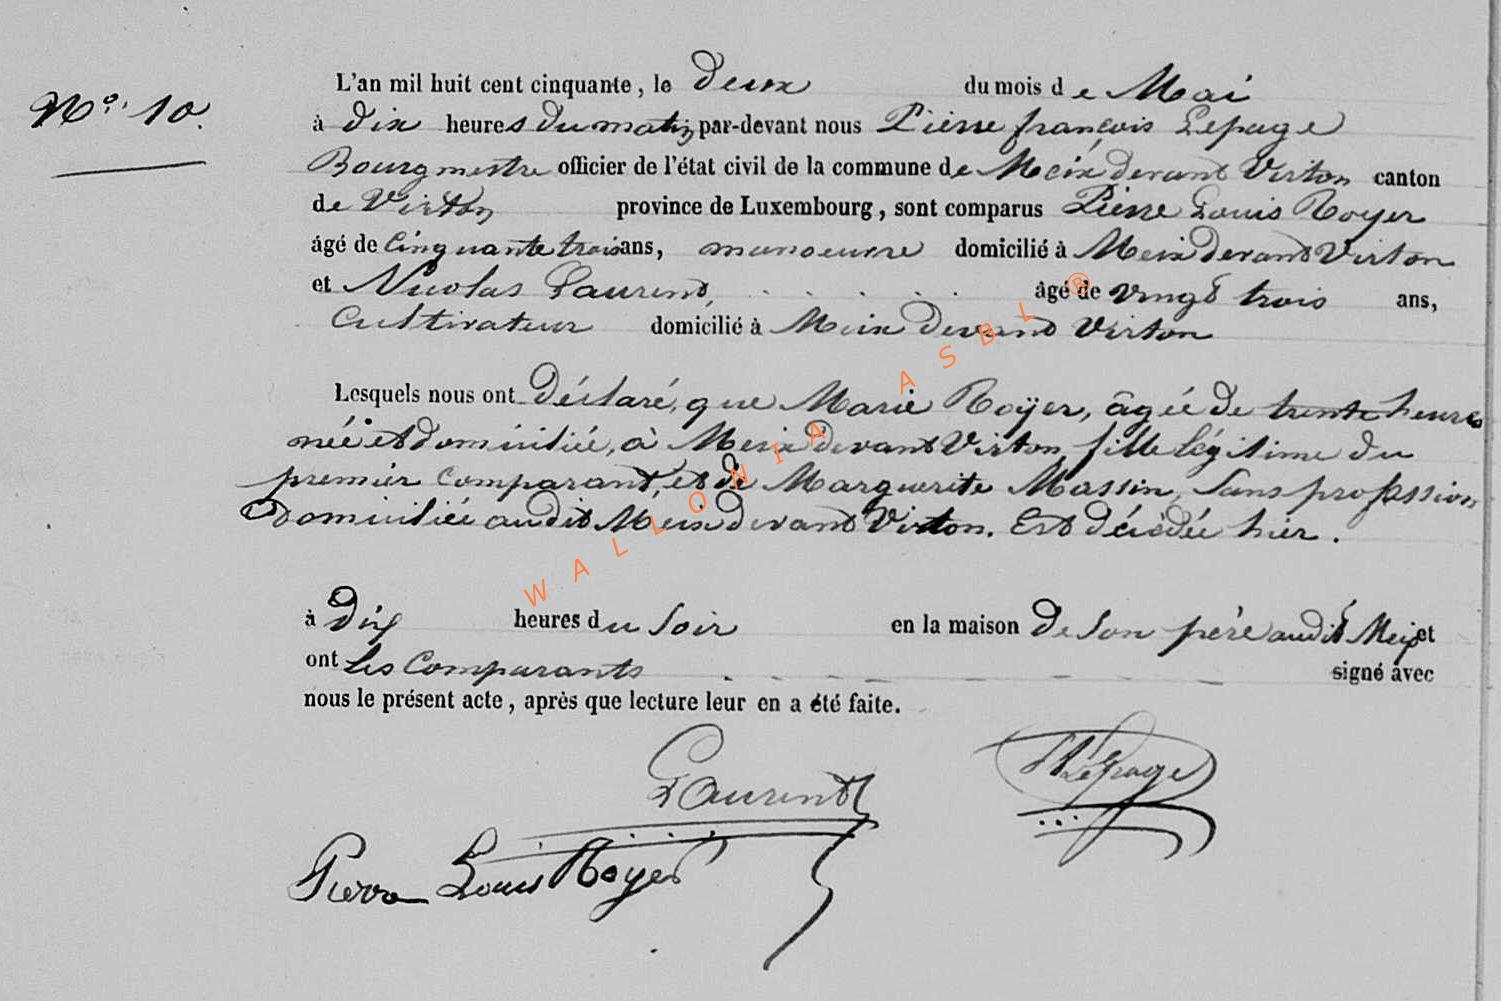 L'an mil huit cent cinquante, le deux du mois de Mai
N° 10.
à dix heures du matin par-devant nous Pierre françois Lepage
Bourgmestre officier de l'état civil de la commune de Meix devant Virton canton
de Virton province de Luxembourg, sont comparus Pierre Louis Royer
âgé de Cinquante trois ans, manoeuvre domicilié à Meix devant Virton
et Nicolas Laurent, . . . . . âgé de vingt trois ans,
Cultivateur domicilié à Meix Devant Virton
Lesquels nous ont Déclaré, que Marie Royer, âgée de trente heures
née et domiciliée, à Meix devant Virton, fille légitime du
premier Comparant, et de Marguerite Massin, Sans profession
Domiciliée audit Meix devant Virton. Est décédée hier.
à Dix heures du Soir en la maison De Son père audit Meix et
ont les Comparants signé avec
nous le présent acte, après que lecture leur en a été faite.
Laurent Lepage
Pierre Louis Royer
WALLONIA ASBL ®